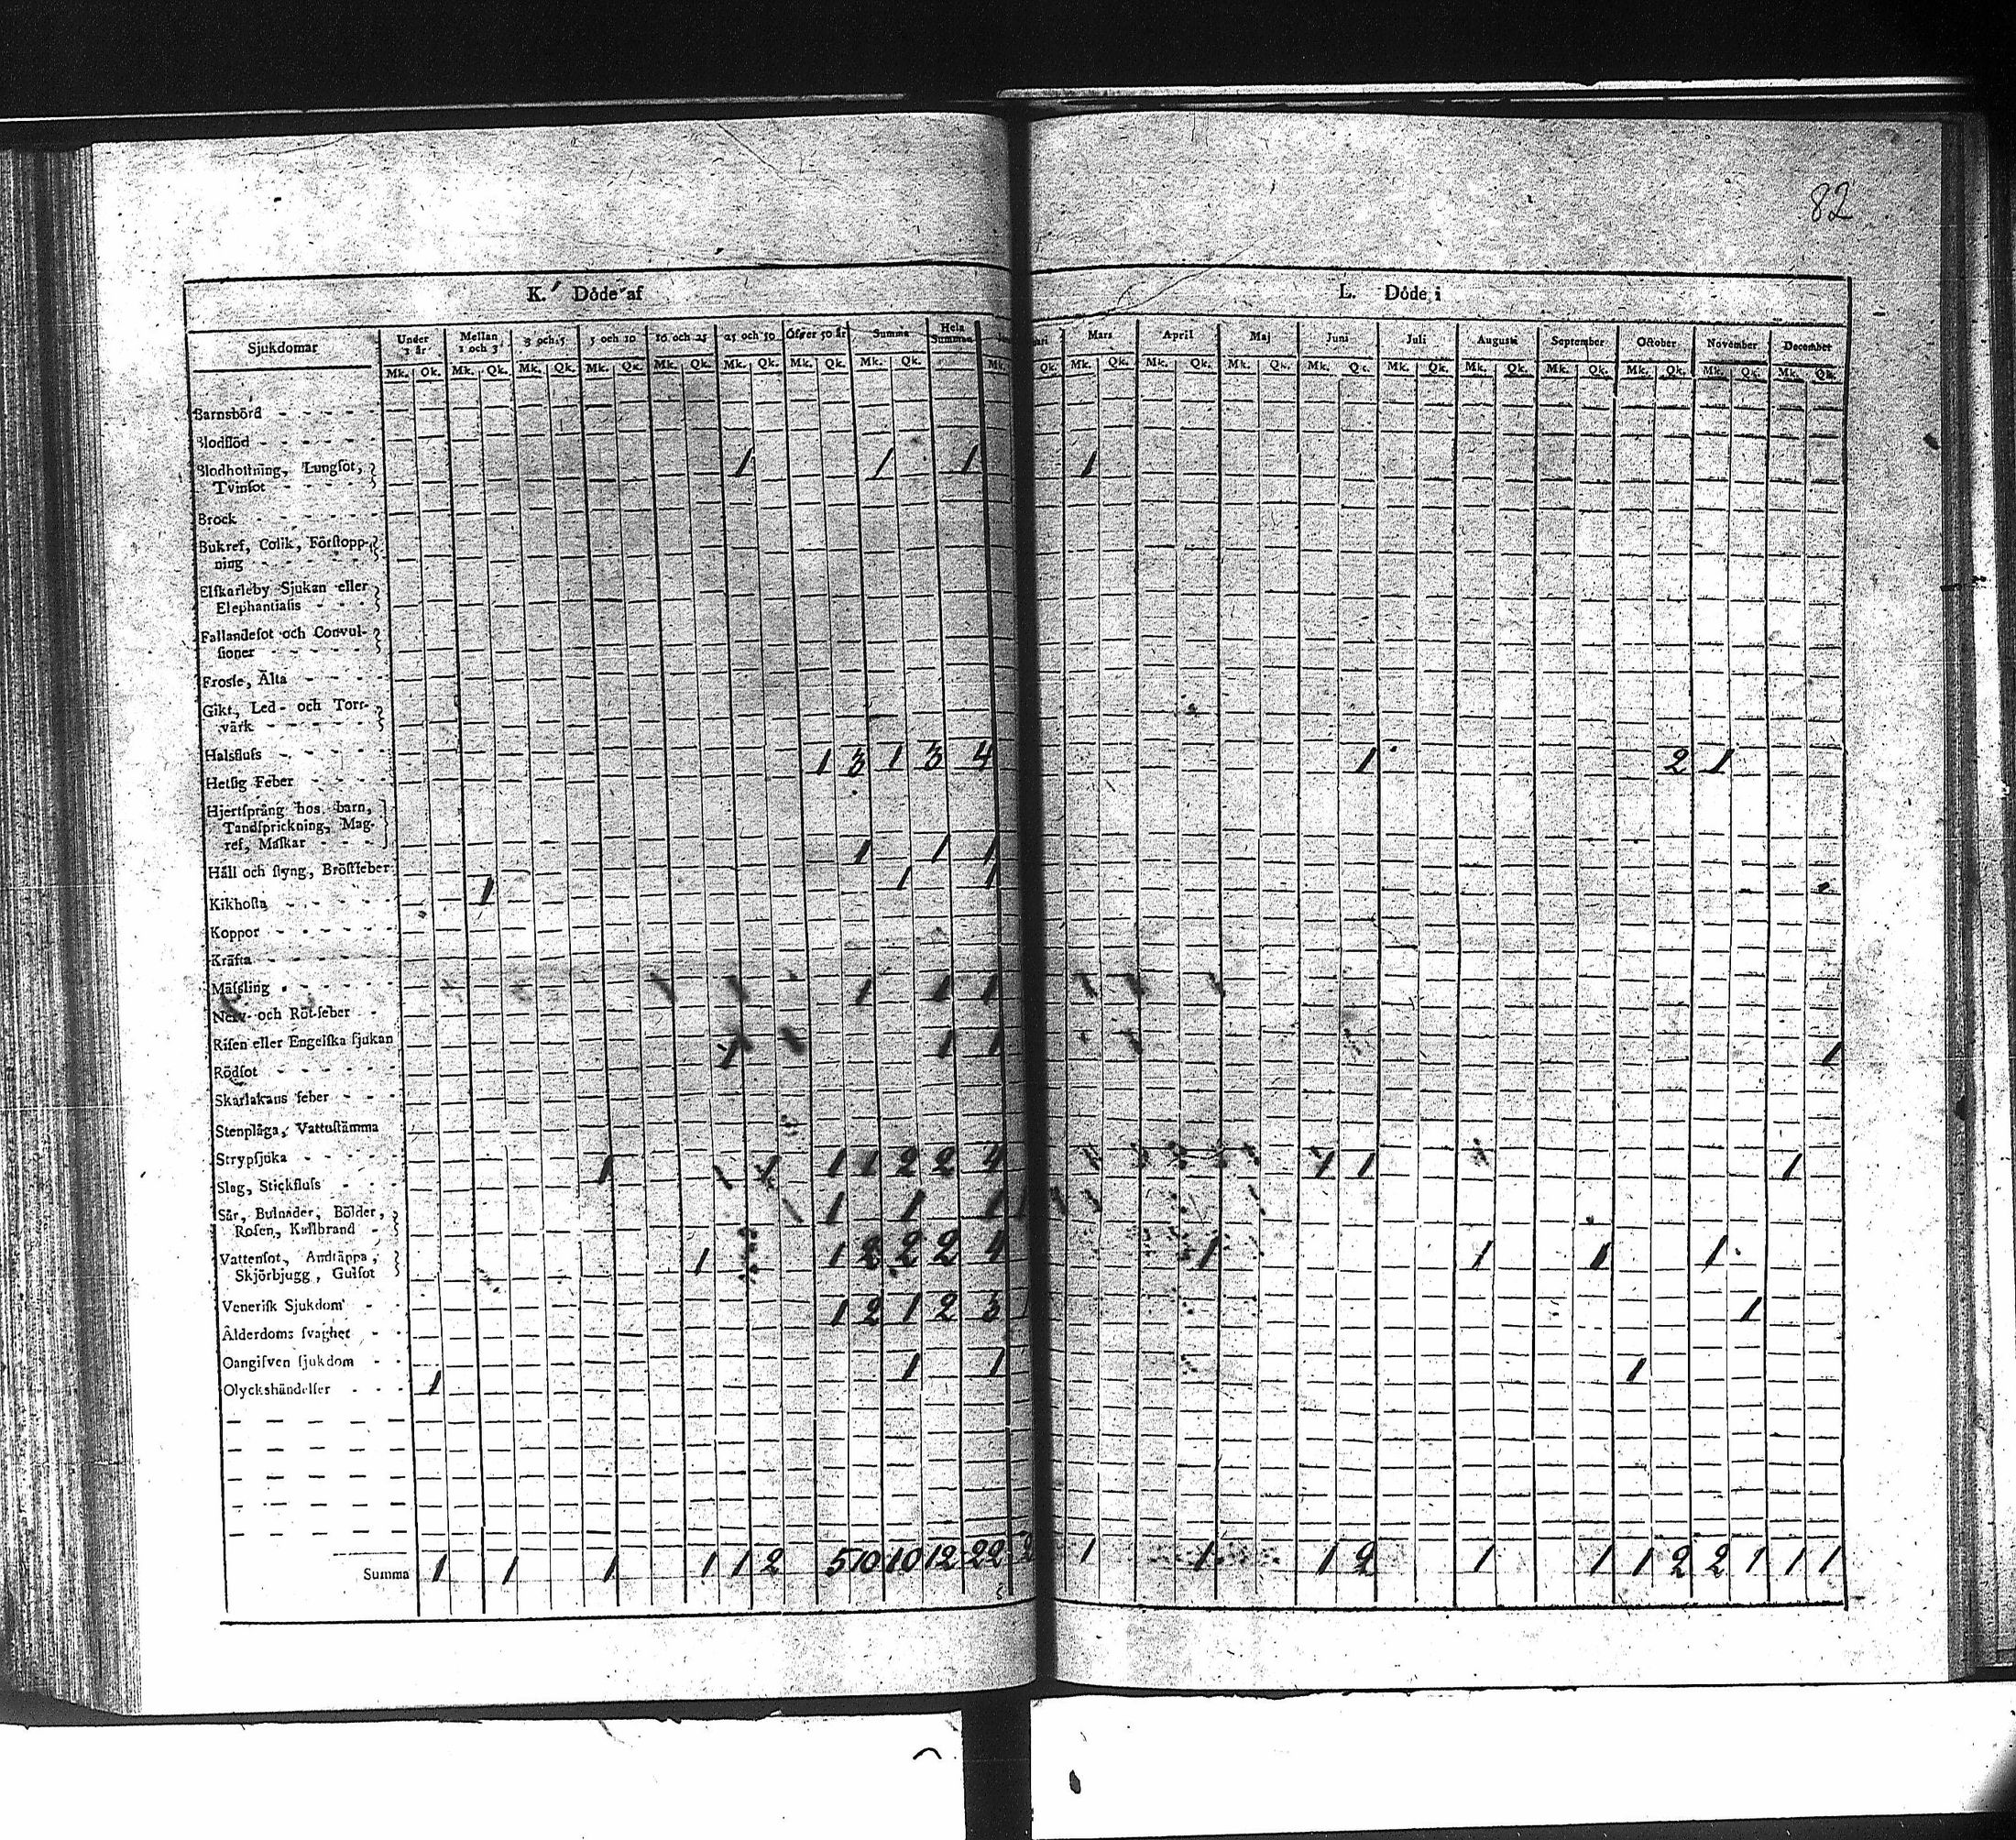 82
K. Döde af
L. Döde i
Sjukdomar Under 1 år Mellan 1 och 3 3 och 5 5 och 10 10 och 25 25 och 50 Öfver 50 år Summa Hela Summan Mars April Maj Juni Juli Augusti September October November December
Mk. Qk. Mk. Qk. Mk. Qk. Mk. Qk. Mk. Qk. Mk. Qk. Mk. Qk. Mk. Qk. Mk. Qk. Mk. Qk. Mk. Qk. Mk. Qk. Mk. Qk. Mk. Qk. Mk. Qk. Mk. Qk. Mk. Qk. Mk. Qk. Mk. Qk.
Barnsbörd
Blodflöd
Blodhostning, Lungsot, 1 1 1 1
Tvinsot
Brock
Bukref, Colik, Förstopp-
ning
Elfkarleby Sjukan eller
Elephantiasis
Fallandesot och Convul-
sioner
Frossa, Älta
Gikt, Led- och Torr-
värk
Halsfluss 1 3 1 3 4 1 2 1
Hetsig Feber
Hjertsprång hos barn,
Tandsprickning, Mag-
ref, Maskar 1 1 1
Håll och styng, Bröstfeber
Kikhosta 1 1 1
Koppor
Kräfta
Mässling 1 1 1
Nerv- och Röt-feber
Risen eller Engelska sjukan 1 1 1 1
Rödsot
Skarlakans feber
Stenplåga, Vattustämma
Strypsjuka 1 1 1 1 2 2 4 1 1 1
Slag, Stickfluss
Sår, Bulnader, Bölder, 1 1 1
Rosen, Kallbrand
Vattensot, Andtäppa, 1 1 2 2 2 4 1 1 1 1
Skjörbjugg, Gulsot
Venerisk Sjukdom 1 2 1 2 3 1
Ålderdoms svaghet
Oangifven sjukdom 1 1 1
Olyckshändelser 1
Summa 1 1 1 1 1 2 5 10 10 12 22 2 1 1 1 2 1 1 1 2 2 1 1 1